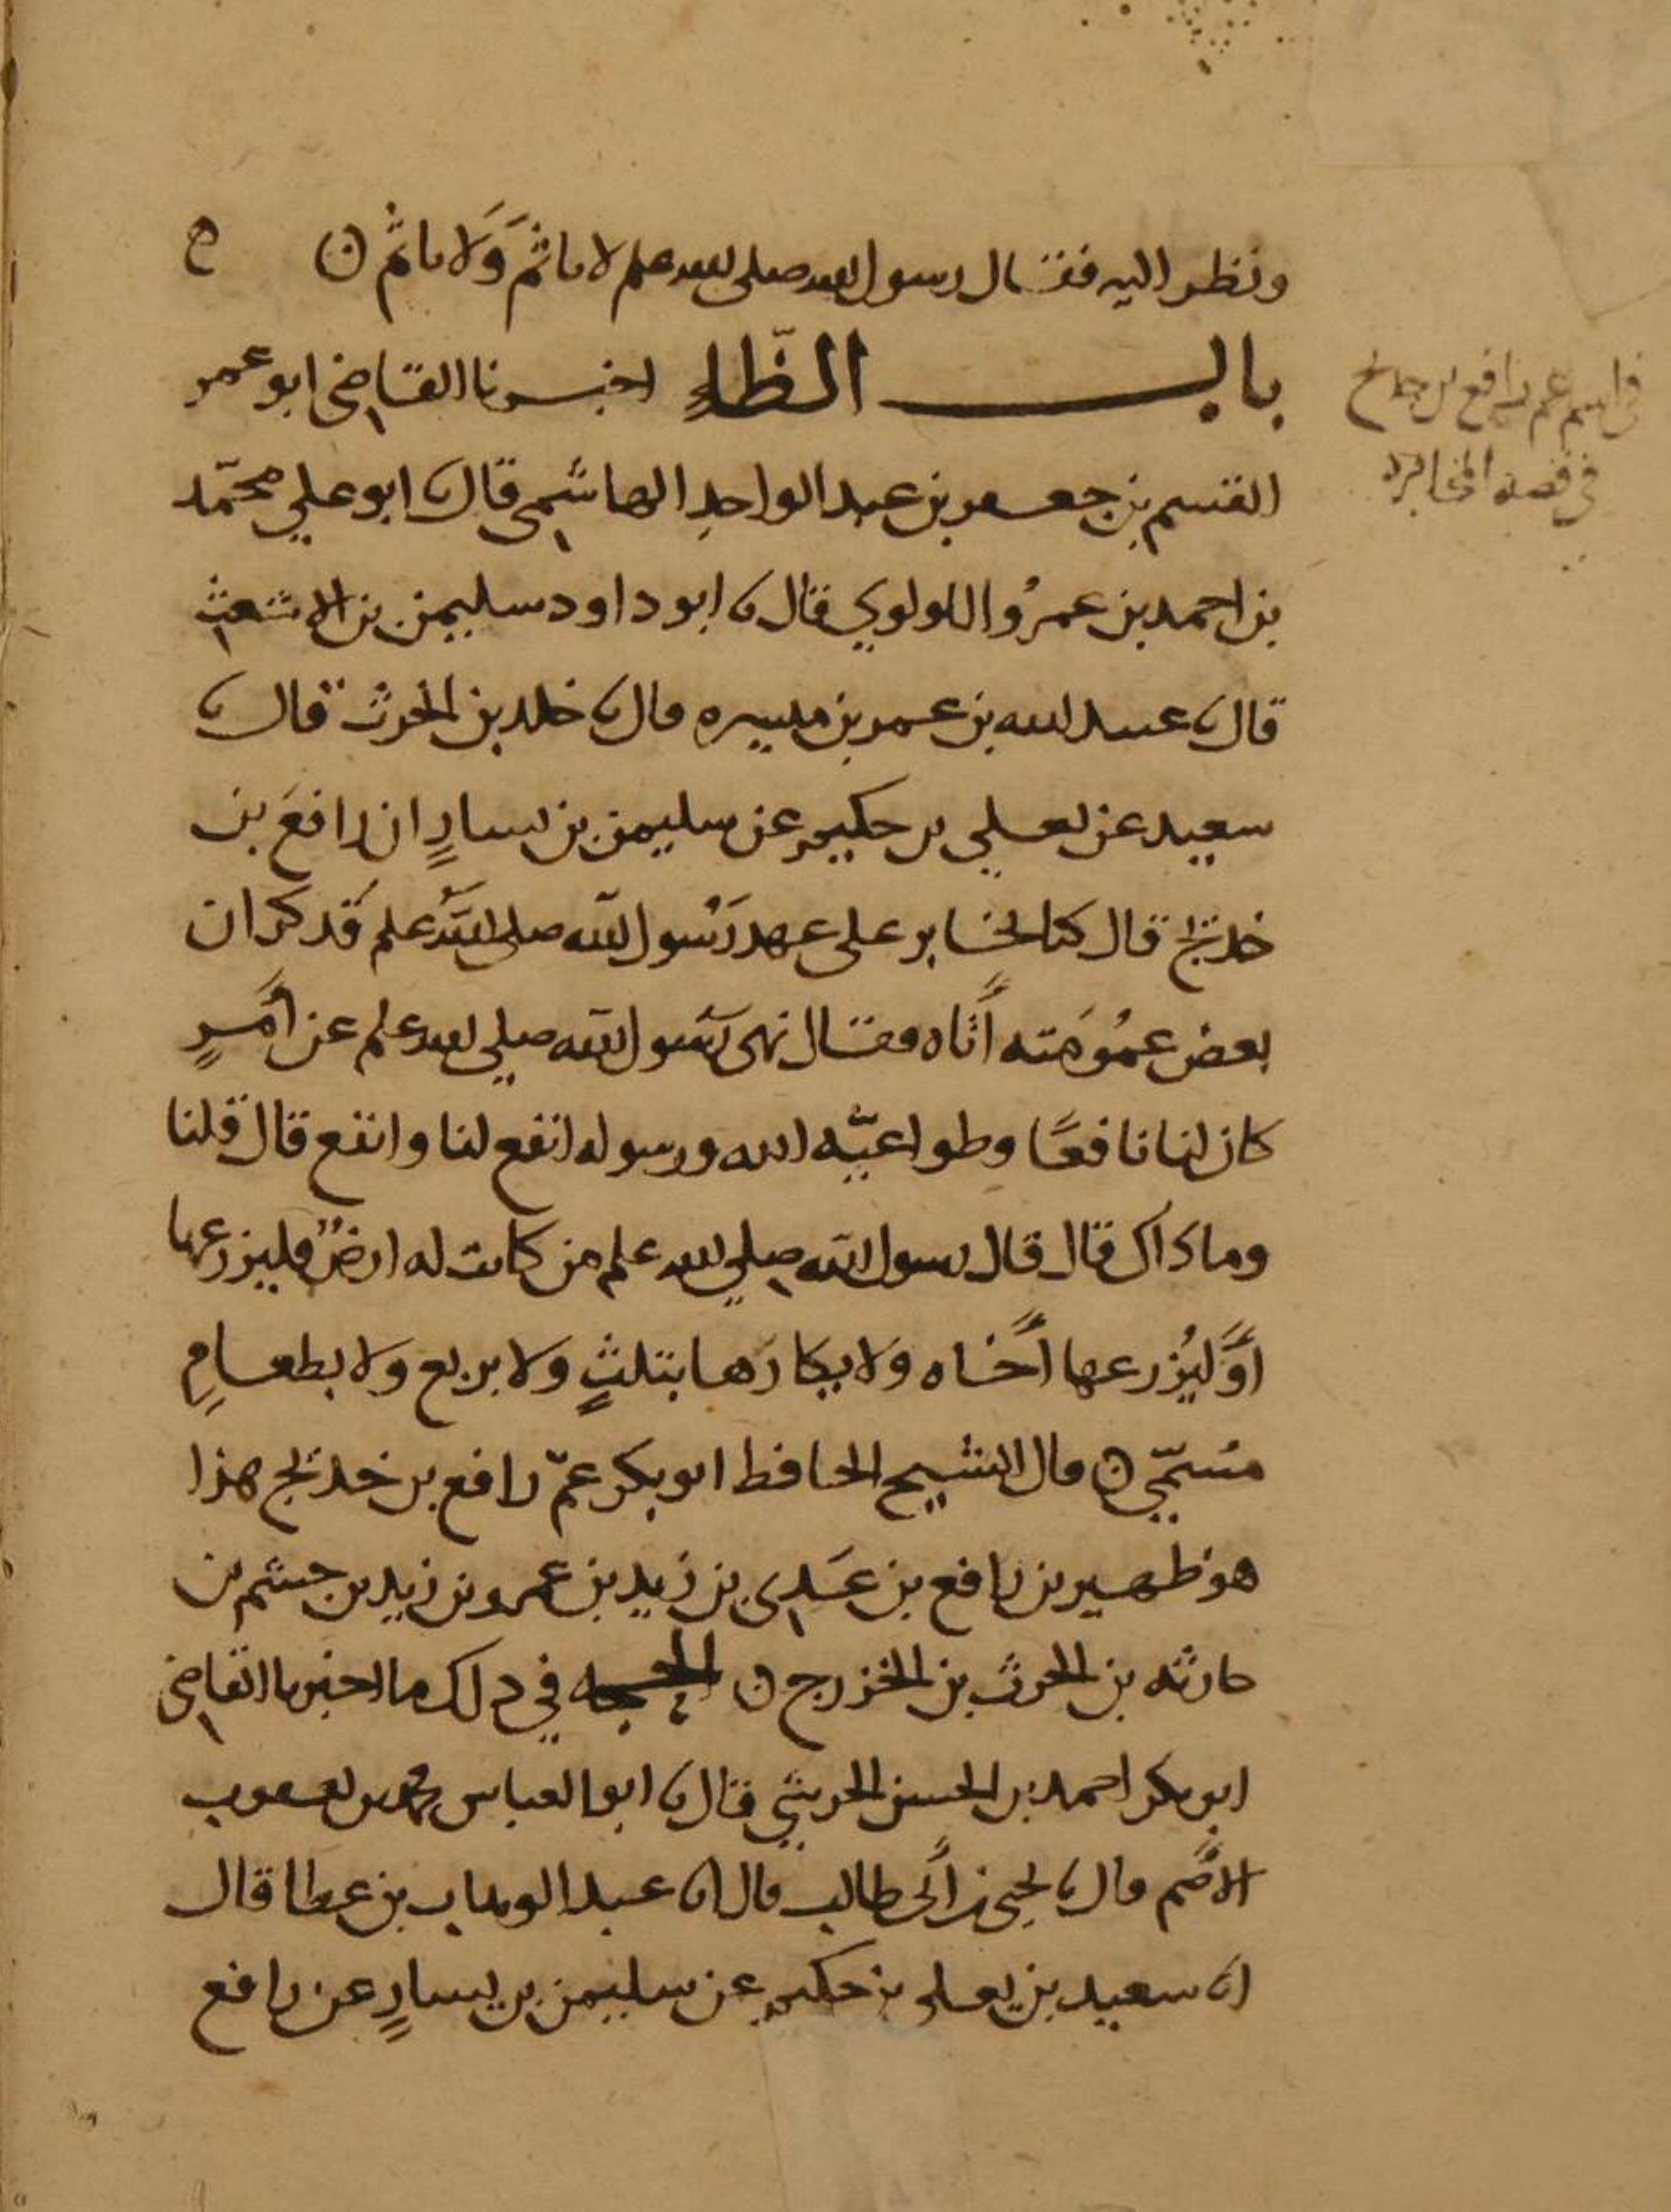 ونظر اليه فقال رسول الله صلى الله علم لا ياثم ولا ياثم ه
باب الظاء اخبرنا القاضي ابو عمر
القسم بن جعفر بن عبد الواحد الهاشمي قال نا ابو علي محمد
بن احمد بن عمرو اللولوي قال نا ابو داود سليمن بن الاشعث
قال نا عبيد الله بن عمر بن ميسره قال نا خلد بن الحرث قال نا
سعيد عن يعلي بن حكيم عن سليمن بن يسار ان رافع بن
خديج قال كنا نخابر على عهد رسول الله صلى الله علم فذكر ان
بعض عمومته أتاه فقال نهى رسول الله صلى الله علم عن أمر
كان لنا نافعا وطواعية الله ورسوله انفع لنا وانفع قال قلنا
وما ذاك قال قال رسول الله صلي الله علم من كانت له ارض فليزرعها
أو ليزرعها أخاه ولا يكارها بثلث ولا بربع ولا بطعام
مسمي ن قال الشيخ الحافظ ابو بكر عم رافع بن خديج هذا
هو ظهير بن رافع بن عدي بن زيد بن عمرو بن زيد بن جشم بن
حارثه بن الحرث بن الخزرج ن الحجه في ذلك ما اخبرنا القاضي
ابو بكر احمد بن الحسن الحرشي قال نا ابو العباس محمد بن يعقوب
الأصم قال نا يحيى بن أبي طالب قال انا عبد الوهاب بن عطا قال
انا سعيد بن يعلي بن حكيم عن سليمن بن يسار عن رافع
في اسم عم رافع بن خديج
في قصة المخابرة